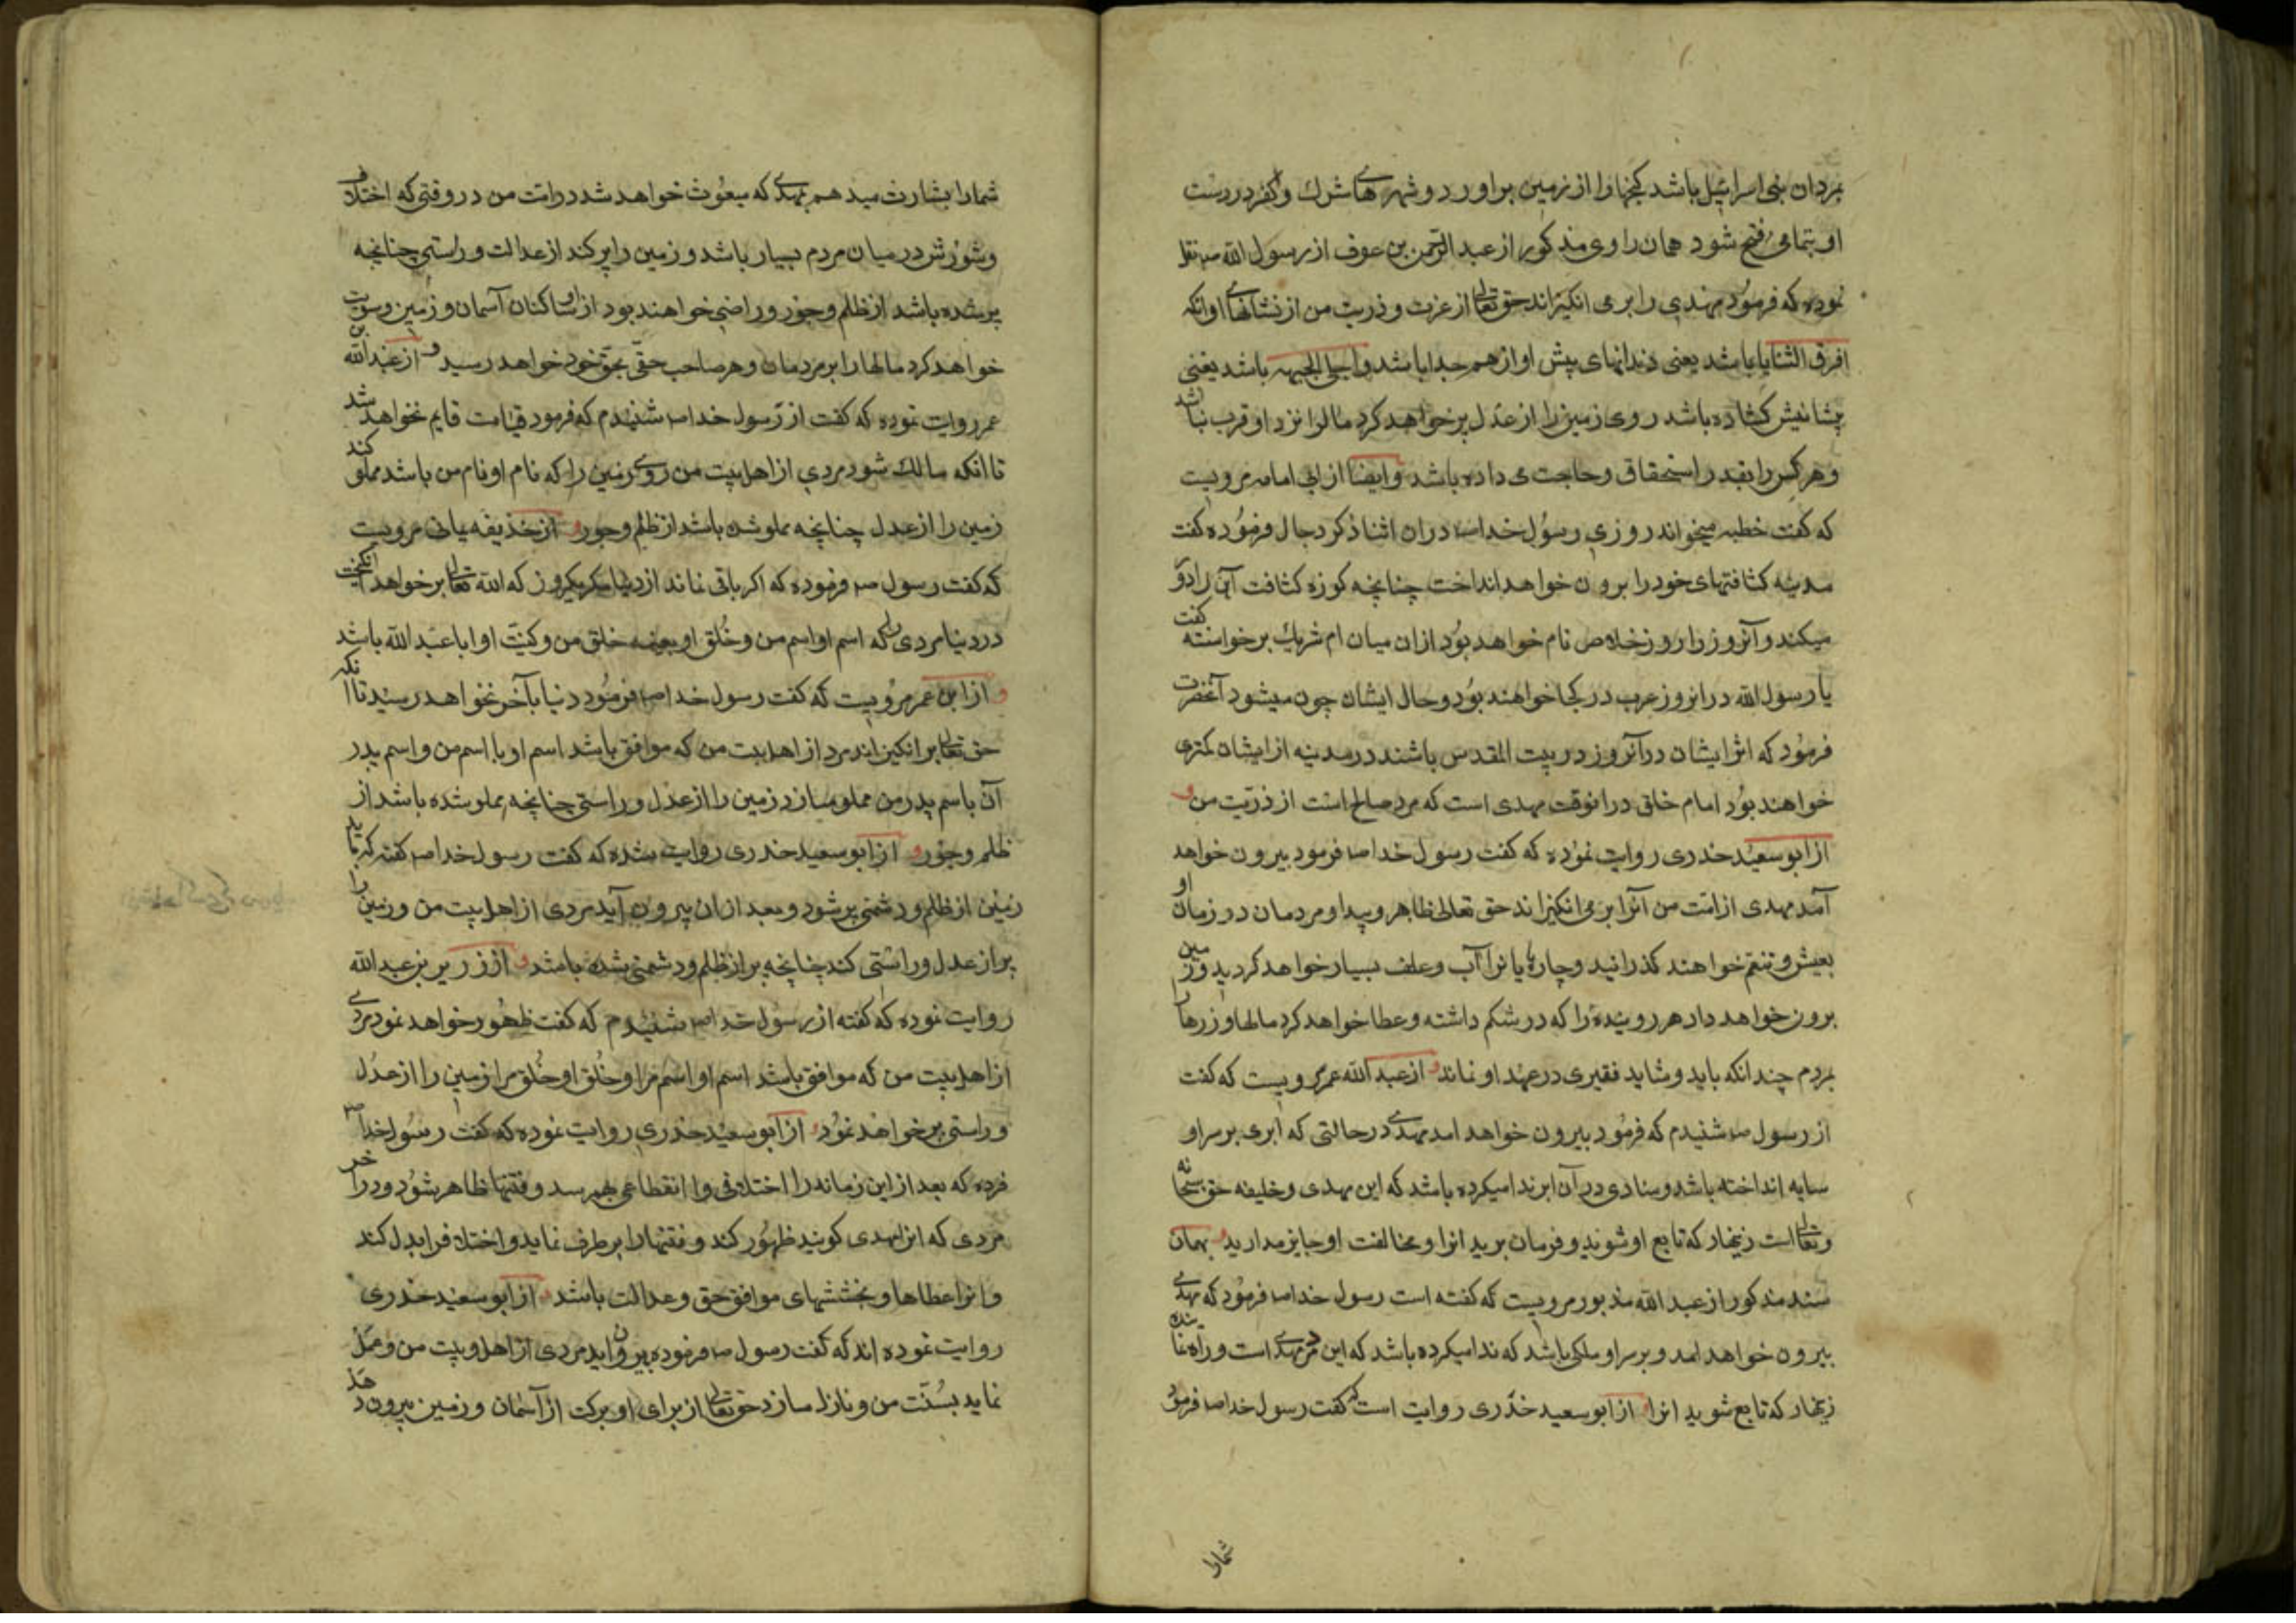 بمردان بنی اسرائیل باشد کنجها را از زمین براورد و شهرهای شرك و کفر در دست
او بتمامی فتح شود همان راوی مذکور از عبد الرحمن بن عوف از رسول الله ص نقل
نموده که فرمود مهدی را بر می انکیزاند حق تعالی از عزت و ذریت من از نشانهای او انکه
افرق الثنایا باشد یعنی دندانهای پیش او از هم جدا باشد و اجلی الجبهه باشد یعنی
پشانیش کشاده باشد روی زمین را از عدل پر خواهد کرد مال را نزد او قرب نباشد
و هر کس را بقدر استحقاق و حاجت می داده باشد و ایضا از ابی امامه مرویست
که کفت خطبه میخواند روزی رسول خدا ص در ان اثنا ذکر دجال فرموده کفت
مدینه کثافتهای خود را برون خواهد انداخت چنانچه کوزه کثافت آن را دور
میکند و آنروز را روز خلاص نام خواهد بود از ان میان ام شریك برخواسته کفت
یا رسول الله در انروز عرب در کجا خواهند بود و حال ایشان چون میشود آنحضرت
فرمود که اثر ایشان در آنروز در بیت المقدس باشند در مدینه از ایشان کمتری
خواهند بود امام خلق در انوقت مهدی است که مرد صالح است از ذریت من و
از ابو سعید خدری روایت نموده که کفت رسول خدا ص فرمود بیرون خواهد
آمد مهدی از امت من آنرا بر می انکیزاند حق تعالی ظاهر و پیدا و مردمان در زمان او
بعیش و تنعم خواهند کذرانید و چارپایانرا آب و علف بسیار خواهد کردید و زمین
برون خواهد داد هر روینده را که در شکم داشته و عطا خواهد کرد مالها و زرها
بمردم چندانکه باید و شاید فقیری در عهد او نماند و از عبد الله عمر مرویست که کفت
از رسول ص شنیدم که فرمود بیرون خواهد امد مهدی در حالتی که ابری بر سر او
سایه انداخته باشد و منادی در آن ابر ندا میکرده باشد که این مهدی و خلیفه حق سبحانه
و تعالی است زینهار که تابع او شوید و فرمان برید انرا و مخالفت او جایز مدارید و بهمان
سند مذکور از عبد الله مذبور مرویست که کفته است رسول خدا ص فرمود که مهدی
بیرون خواهد امد و بر سر او ملکی باشد که ندا میکرده باشد که این مهدی است و راه نماینده
زینهار که تابع شوید انرا و از ابو سعید خدری روایت است که کفت رسول خدا ص فرمود
شمارا
شمارا بشارت میدهم بمهدی که مبعوث خواهد شد در امت من در وقتی که اختلاف
و شورش در میان مردم بسیار باشد و زمین را پر کند از عدالت و راستی چنانچه
پر شده باشد از ظلم و جور و راضی خواهند بود از او ساکنان آسمان و زمین و سویت
خواهد کرد مالها را بر مردمان و هر صاحب حقی بحق خود خواهد رسید و از عبد الله بن
عمر روایت نموده که کفت از رسول خدا ص شنیدم که فرمود قیامت قایم نخواهد شد
تا انکه مالك شود مردی از اهل بیت من روی زمین را که نام او نام من باشد مملو کند
زمین را از عدل چنانچه مملو شده باشد از ظلم و جور و از حذیفه یمانی مرویست
که کفت رسول ص فرموده که اکر باقی نماند از دنیا مکر یکروز که الله تعالی بر خواهد انکیخت
در دنیا مردی را که اسم او اسم من و خلق او بعینه خلق من و کنیت او ابا عبد الله باشد
و از ابن عمر مرویست که کفت رسول خدا ص فرمود دنیا بآخر نخواهد رسید تا انکه
حق تعالی بر انکیزاند مرد از اهل بیت من که موافق باشد اسم او با اسم من و اسم پدر
آن باسم پدر من مملو سازد زمین را از عدل و راستی چنانچه مملو شده باشد از
ظلم و جور و از ابو سعید خدری روایت شده که کفت رسول خدا ص کفته که باید
زمین از ظلم و دشمنی پر شود و بعد از ان بیرون آید مردی از اهل بیت من و زمین را
پر از عدل و راستی کند چنانچه پر از ظلم و دشمنی شده باشد و از زر بن عبد الله
روایت نموده که کفته از رسول خدا ص شنیدم که کفت ظهور خواهد نمود مردی
از اهل بیت من که موافق باشد اسم او اسم مرا و خلق او خلق مرا زمین را از عدل
و راستی پر خواهد نمود و از ابو سعید خدری روایت نموده که کفت رسول خدا ص
فرده که بعد از این زمانه را اختلافی و انقطاعی بهم رسد و فتنها ظاهر شود و در اخر
مردی که انرا مهدی کویند ظهور کند و فتنها را بر طرف نماید و اختلاف را بدل کند
و انرا عطاها و بخششهای موافق حق و عدالت باشد و از ابو سعید خدری
روایت نموده اند که کفت رسول ص فرموده بیرون اید مردی از اهل بیت من و عمل
نماید بسنت من و نازل سازد حق تعالی از برای او برکت از آسمان و زمین بیرون دهد